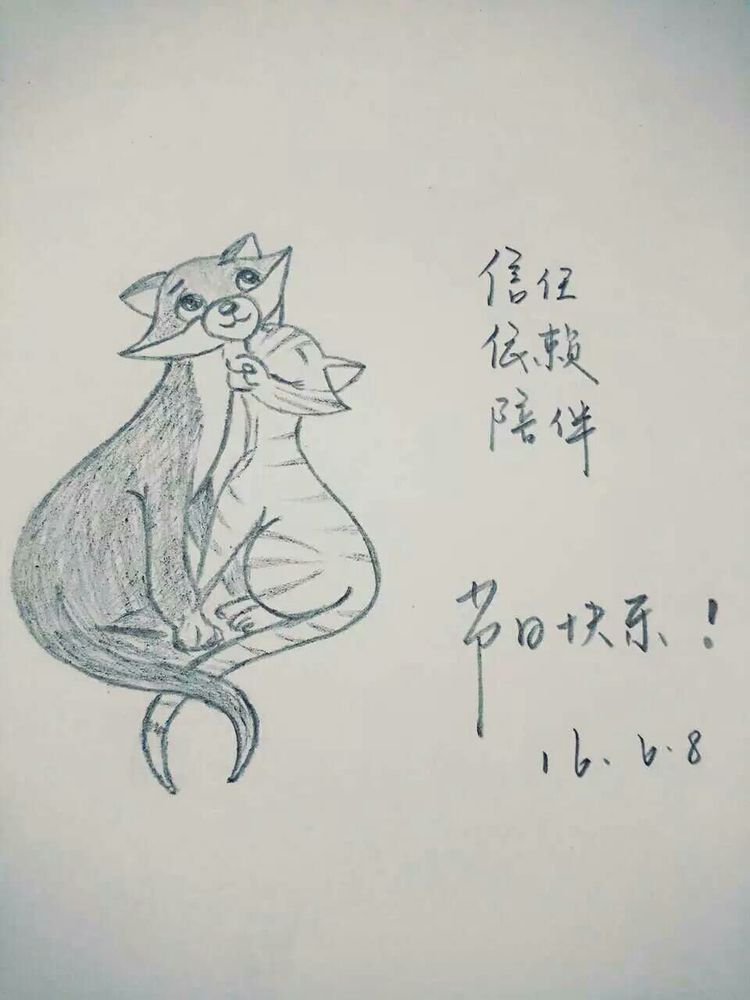 信任
依赖
陪伴
节日快乐！
16.6.8